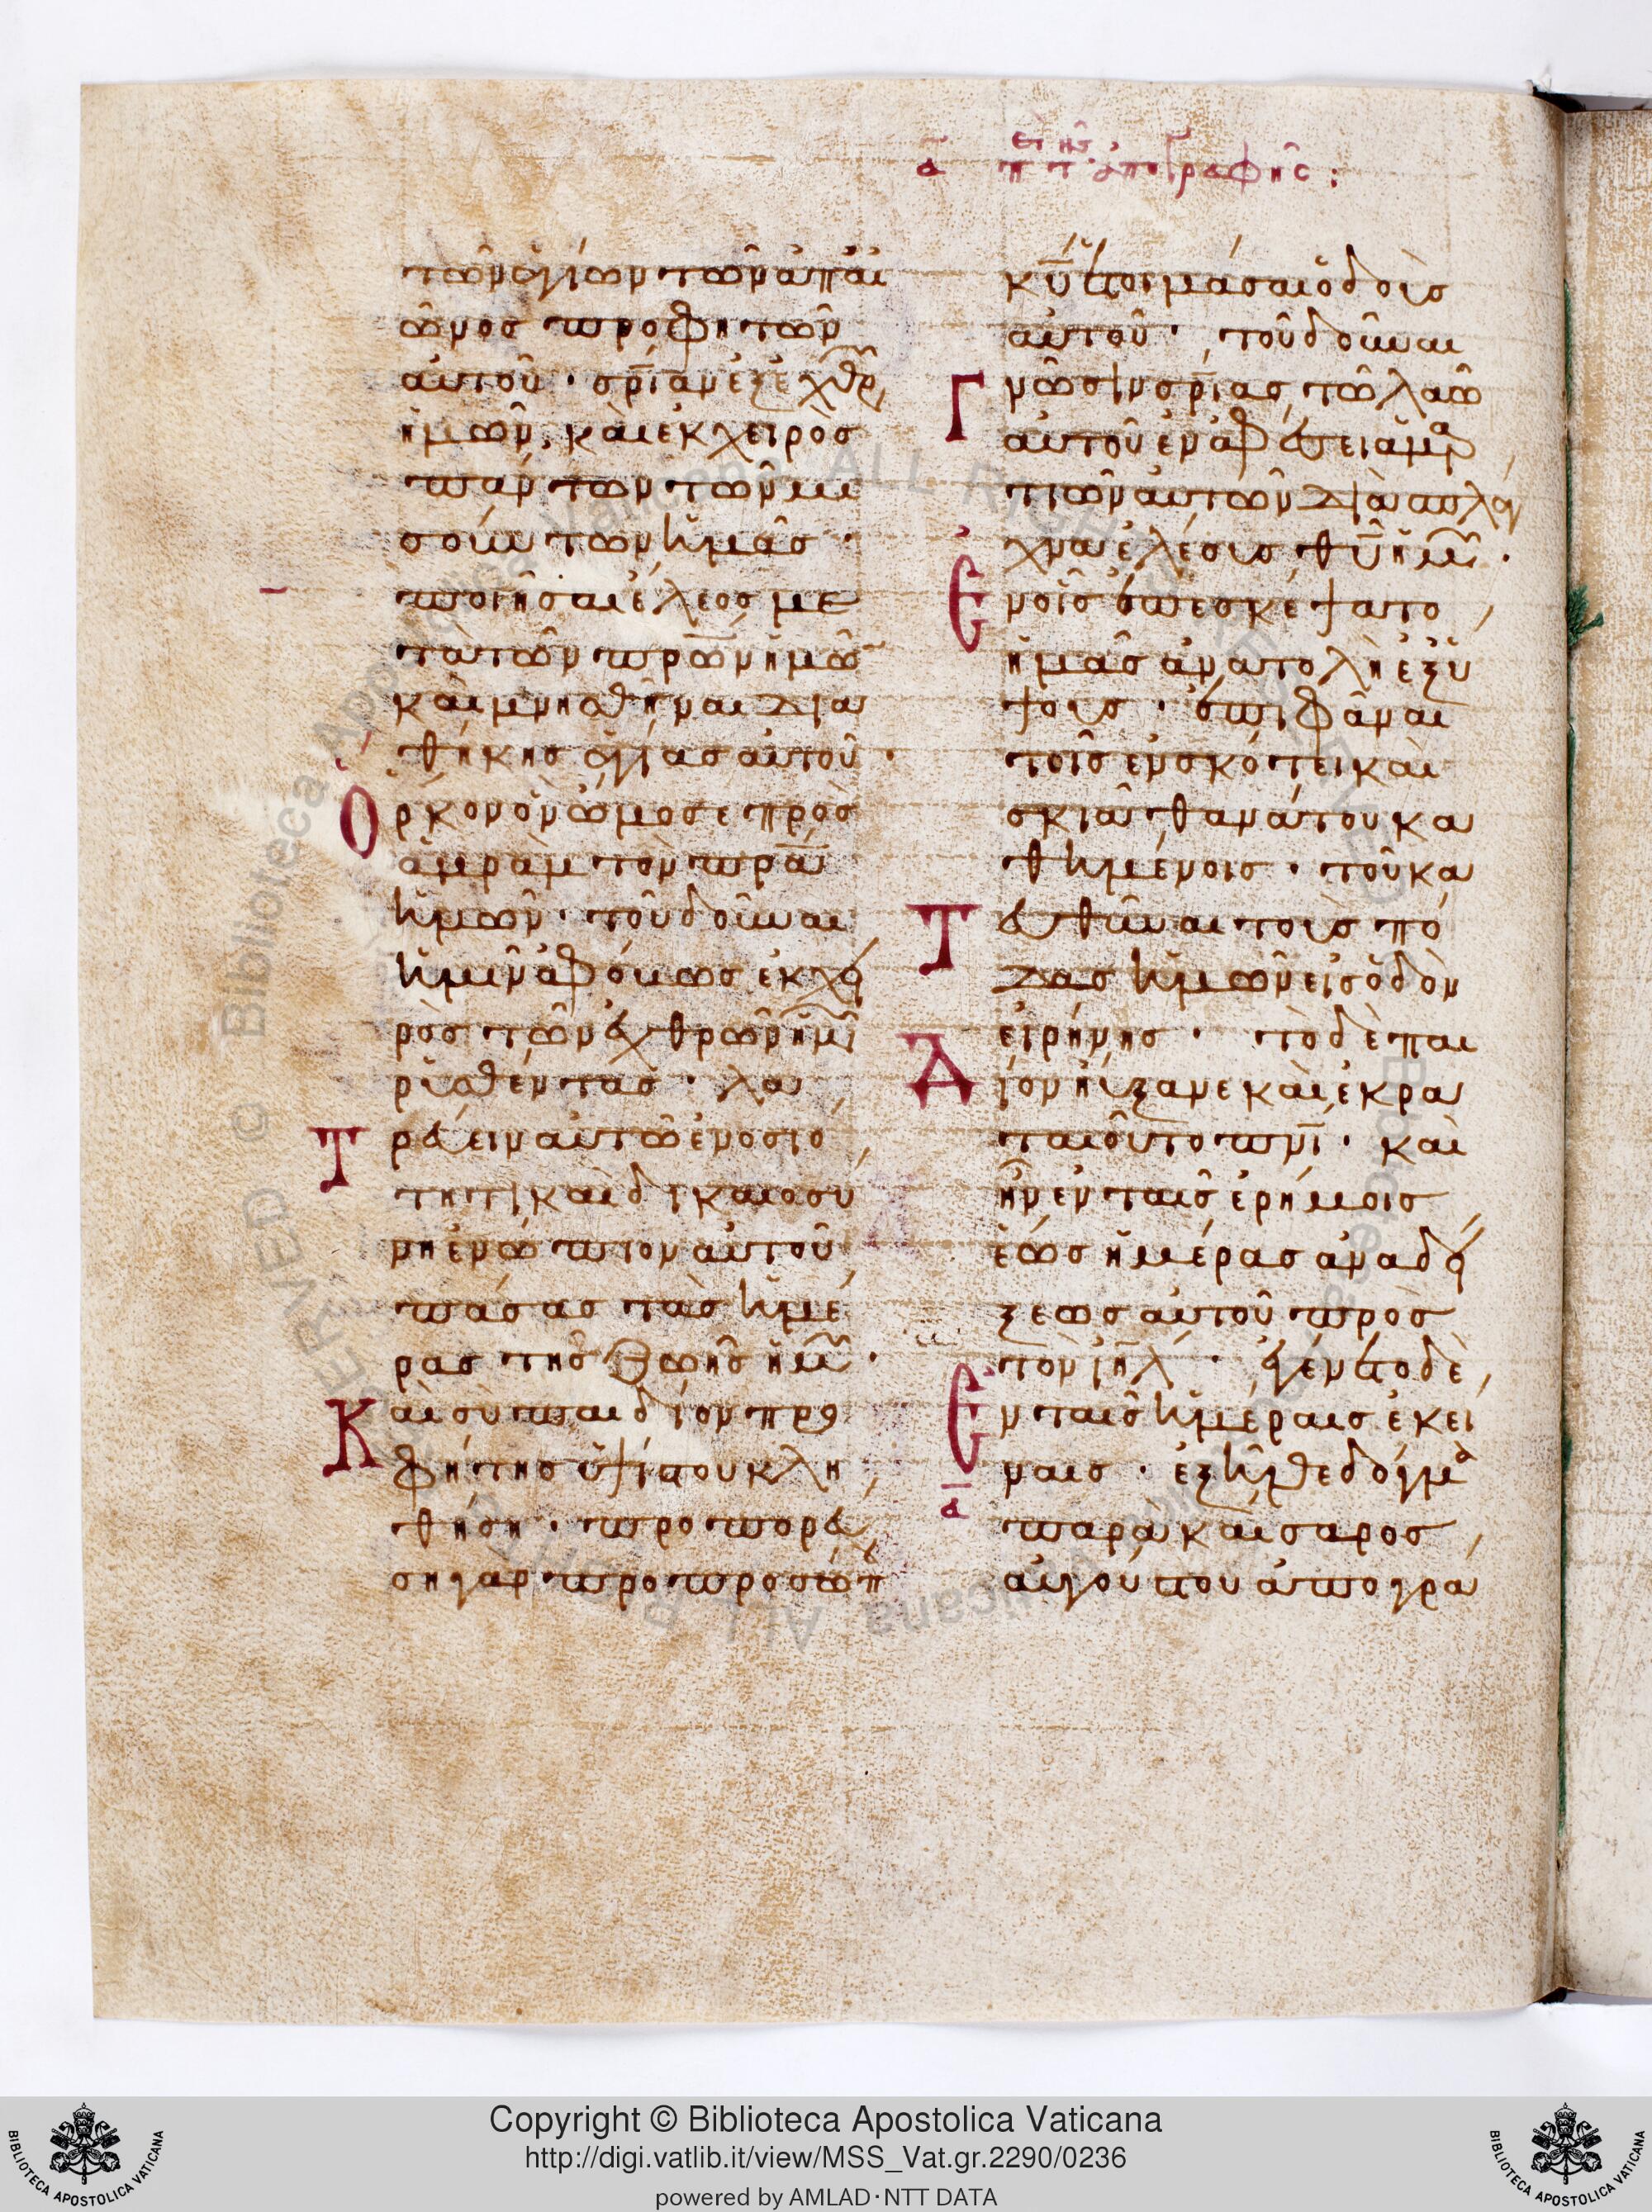 α̅ περὶ τῆς ἀπογραφῆς:
τῶν ἁγίων τῶν ἀπ' αἰ
ῶνος προφητῶν
αὐτοῦ· σρ̅ιαν ἐξ ἐχθρ
ἡμῶν, καὶ ἐκ χειρὸς
πάντων τῶν μι
σούντων ἡμᾶς·
ποιῆσαι ἔλεος με
τὰ τῶν πρ̅ων ἡμῶ
καὶ μνησθῆναι δια
θήκης ἁγίας αὐτοῦ·
Ὅρκον ὃν ὤμοσε πρὸς
ἀβραὰμ τὸν πρ̅α
ἡμῶν· τοῦ δοῦναι
ἡμῖν ἀφόβως ἐκ χει
ρὸς τῶν ἐχθρῶν ἡμ
ρυσθέντας· λα
Τρεύειν αὐτῶ ἐν ὁσιό
τητι καὶ δικαιοσύ
νη ἐνώπιον αὐτοῦ
πάσας τὰς ἡμέ
ρας τῆς ζωῆς ἡμ·
Καὶ σὺ παιδίον προ
φήτης ὑψίστου κλη
θήση· προπορεύ
ση γὰρ πρὸ προσώπ
κ̅υ ἑτοιμάσαι ὁδοὺς
αὐτοῦ· τοῦ δοῦναι
Γνῶσιν σρ̅ιας τῶ λαῶ
αὐτοῦ ἐν ἀφέσει ἁμαρ
τιῶν αὐτῶν διὰ σπλάγ
χνα ἐλέους θ̅υ ἡμ·
Ἐν οἷς ἐπεσκέψατο
ἡμᾶς ἀνατολὴ ἐξ ὕ
ψους· ἐπιφᾶναι
τοῖς ἐν σκότει καὶ
σκιᾶ θανάτου κα
θημένοις· τοῦ κα
Τευθῦναι τοὺς πό
δας ἡμῶν εἰς ὁδὸν
εἰρήνης· τὸ δὲ παι
Δίον ηὔξανε καὶ ἐκρα
ταιοῦτο πν̅ι· καὶ
ἦν ἐν ταῖς ἐρήμοις
ἕως ἡμέρας ἀναδεί
ξεως αὐτοῦ πρὸς
τὸν ι̅η̅λ· ἐγένετο δὲ
Ἐν ταῖς ἡμέραις ἐκεί
ναις· ἐξῆλθε δόγμα
α̅
παρὰ καίσαρος
αὐγούστου ἀπογρά
Copyright © Biblioteca Apostolica Vaticana
http://digi.vatlib.it/view/MSS_Vat.gr.2290/0236
powered by AMLAD·NTT DATA
BIBLIOTECA APOSTOLICA VATICANA
BIBLIOTECA APOSTOLICA VATICANA